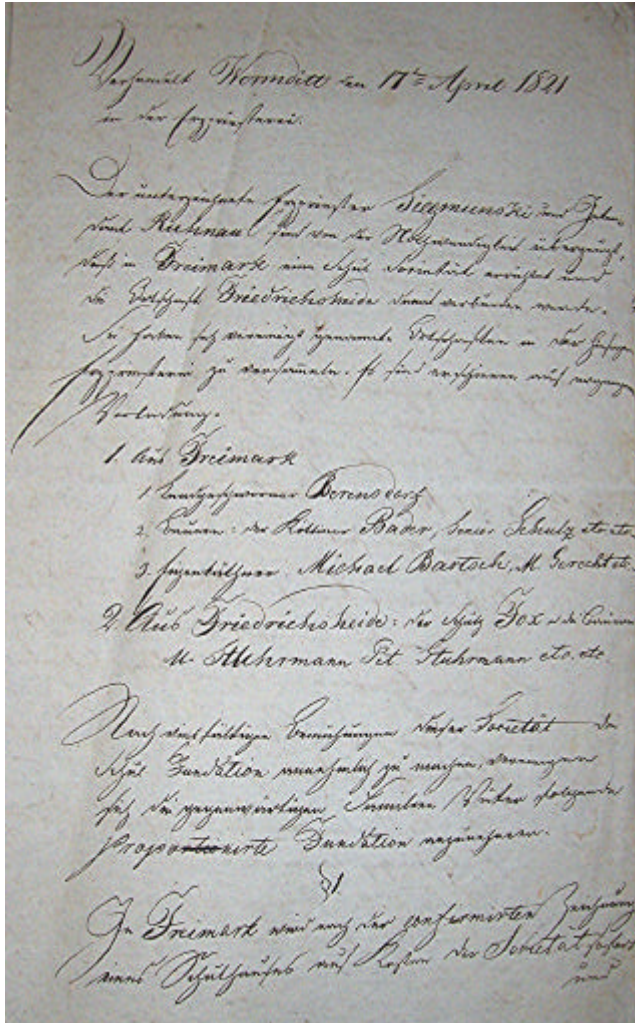 Verhandelt Wormditt den 17ten April 1821
in der Erzpriesterei.
Der unterzeichnete Erzpriester Siegmunski und
Ruhnau sind von der Nothwendigkeit überzeugt,
daß in Freimark eine Schul Societät errichtet und
die Ortschaft Friedrichsheide damit verbunden werde.
Sie haben sich vereinigt genannte Ortschaften in der
Erzpriesterei zu versammeln. Es sind erschienen auf
Vorladung.
1. Aus Freimark
1. Landgeschworner Berensdorf
2. Bauern: der Köllmer Bader, Schulz etc etc.
3. Eigenkäthner Michael Bartsch, M. Gerecht etc.
2. Aus Friedrichsheide: der Schulz Fox u die
M. Stuhrmann Pet. Stuhrmann etc. etc.
Nach vielfältigen Bemühungen dieser Societät die
Schul Fundation annehmlich zu machen, vereinigen
sich die gegenwärtigen Familien Väter folgende
proportionirte Fundation anzunehmen.
§ 1
In Freimark wird nach der confirmirten Zeichnung
eines Schulhauses auf Kosten der Societät
und